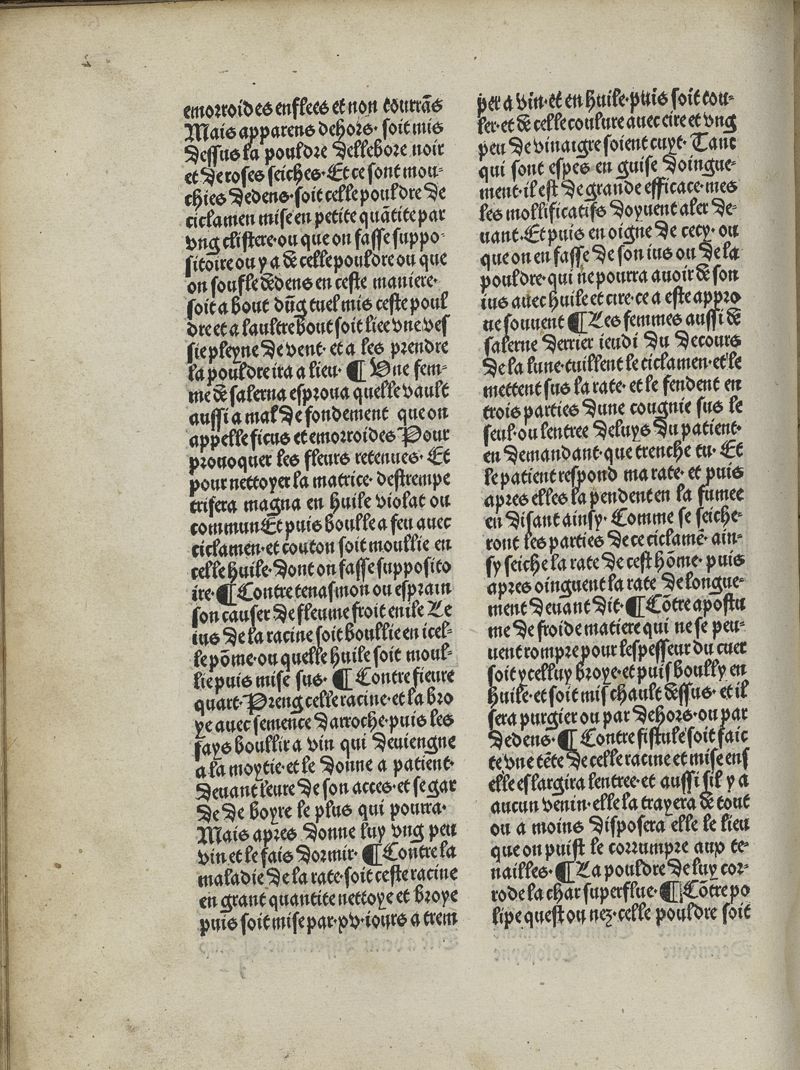 emorroides enflees et non courrãs
Mais apparens dehors· soit mis
dessus la pouldre dellebore noir
et de roses seiches· Et ce sont mou-
chies dedens· soit celle pouldre de
ciclamen mise en petite quãtite par
vng clistere· ou que on fasse suppo-
sitoire ou y a de celle pouldre ou que
on soufle dedens en ceste maniere·
soit a bout dũg tuel mis ceste poul
dre et a laultre bout soit liee vne ves
sie pleyne de vent· et a les prendre
la pouldre ira a lieu· ¶ Vne fem-
me de salerna esproua quelle vault
aussi a mal de fondement que on
appelle ficus et emorroides Pour
prouoquer les fleurs retenues· Et
pour nettoyer la matrice· destrempe
trifera magna en huile violat ou
commun Et puis boulle a feu auec
ciclamen· et couton soit moullie en
celle huile· dont on fasse supposito
ire· ¶ Contre tenasmon ou esprain
son causer de fleume froit enile Le
ius de la racine soit boullie en icel-
le põme· ou quelle huile soit moul-
lie puis mise sus· ¶ Contre fieure
quart· Preng celle racine· et la bro
ye auec semence darroche· puis les
fays boullir a vin qui deuiengne
a la moytie· et le donne a patient·
deuant leure de son acces· et se gar
de de boyre le plus qui pourra·
Mais apres donne luy vng peu
vin et le fais dormir· ¶ Contre la
maladie de la rate· soit ceste racine
en grant quantite nettoye et broye
puis soit mise par· xv· iours a trem
per a vin· et en huile· puis soit cou-
ler· et de celle coulure auec cire et vng
peu de vinaigre soient cuyt· Tant
qui sont espes en guise doingue-
ment· il est de grande efficace· mes
les mollificatifs doyuent aler de-
uant· Et puis en oigne de cecy· ou
que on en fasse de son ius ou de la
pouldre· qui ne pourra auoir de son
ius auec huile et cire· ce a este appro
ue souuent ¶ Les femmes aussi de
salerne derrier ieudi du decours
de la lune· tuillent le ciclamen· et le
mettent sus la rate· et le fendent en
trois parties dune cougnie sus le
seul· ou lentree deluys du patient·
en demandant· que trenche tu· Et
le patient respond ma rate· et puis
apres elles la pendent en la fumee
en disant ainsy· Comme se seiche-
ront les parties de ce ciclamẽ· ain-
sy seiche la rate de cest hõme· puis
apres oinguent la rate de longue-
ment deuant dit· ¶ Cõtre apostu
me de froide matiere qui ne se peu-
uent rompre pour lespesseur du cuer
soit ycelluy broye· et puis boully en
huile· et soit mis chault dessus· et il
sera purgier ou par dehors· ou par
dedens· ¶ Contre fistule soit faic
te vne tẽte de celle racine et mise ens
elle eslargira lentree· et aussi sil y a
aucun venin· elle la trayera de tout
ou a moins disposera elle le lieu
que on puist le corrumpre aup te-
nailles· ¶ La pouldre de luy cor-
rode la char superflue· ¶ Cõtre po
lipe quest ou nez· celle pouldre soit